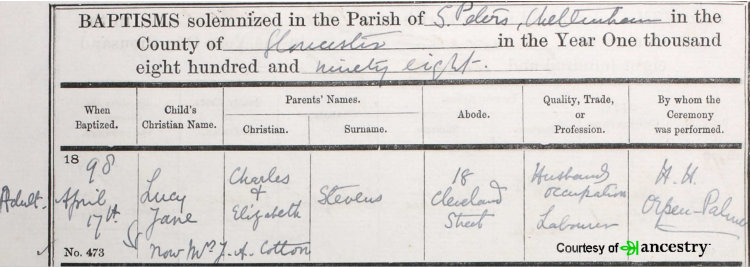 BAPTISMS solemnized in the Parish of St. Peters, Cheltenham in the
County of Gloucester in the Year One thousand
eight hundred and ninety eight.
When Baptized.
Child's Christian Name.
Parents' Names.
Christian.
Surname.
Abode.
Quality, Trade, or Profession.
By whom the Ceremony was performed.
Adult.
1898
April
17th
No. 473
Lucy
Jane
Charles
&
Elizabeth
Stevens
18
Cleveland
Street
Husband's
occupation
Labourer
H. H.
Orpen-Palmer
Now Mrs J. A. Cotton
Courtesy of ancestry